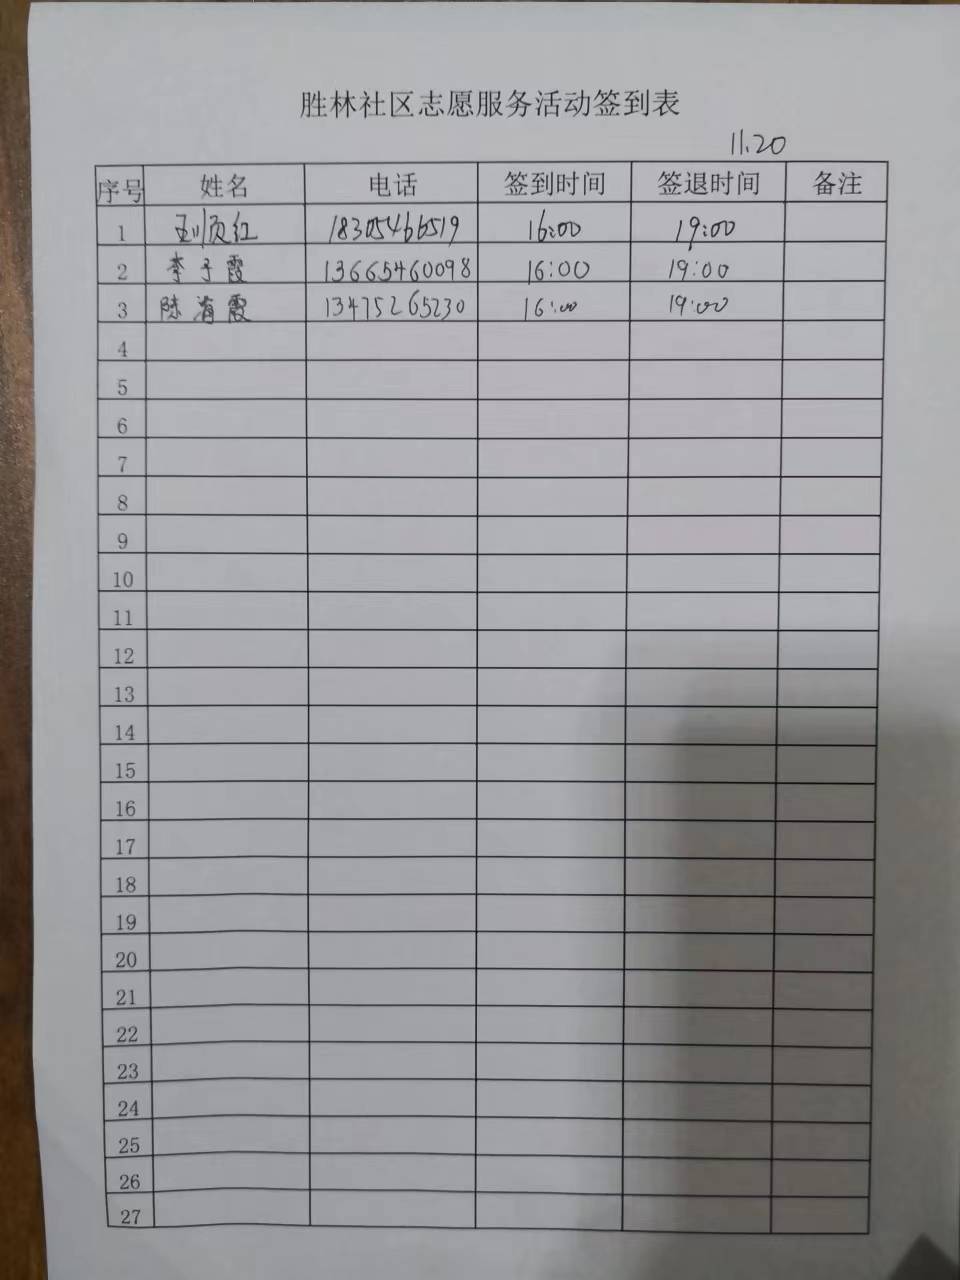 胜林社区志愿服务活动签到表
11.20
序号 姓名 电话 签到时间 签退时间 备注
1 王顺红 18305466519 16:00 19:00
2 李子霞 13665460098 16:00 19:00
3 陈海霞 13475265230 16:00 19:00
4
5
6
7
8
9
10
11
12
13
14
15
16
17
18
19
20
21
22
23
24
25
26
27